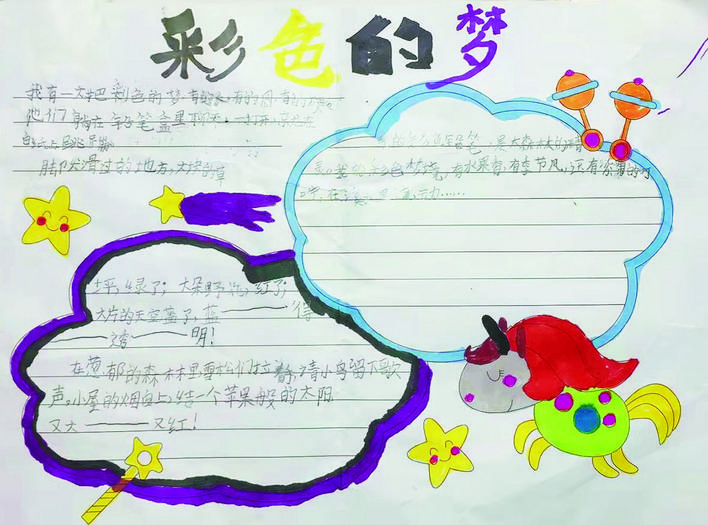 彩色的梦
我有一大把彩色的梦有的长,有的圆,有的
他们躺在铅笔盒里聊天,一打开,就
脚尖滑过的地方,大块的草
的彩色铅笔,是大森林的精
彩色梦境,有水果香,有季节风,还有紫葡萄的
坪,绿了;大朵野花,红了;
大片的天空蓝了,蓝——得
——透——明!
在葱郁的森林里雪松们拉着请小鸟留下歌
声。小屋的烟囱上,结一个苹果般的太阳
又大——又红!